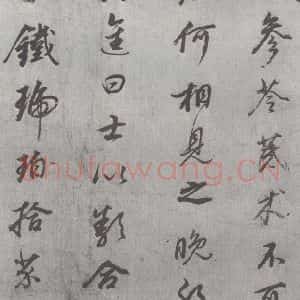 參苓芪术不可
何相見之晚
進曰士以類合
鐵琥珀拾芥
shufawang.CN